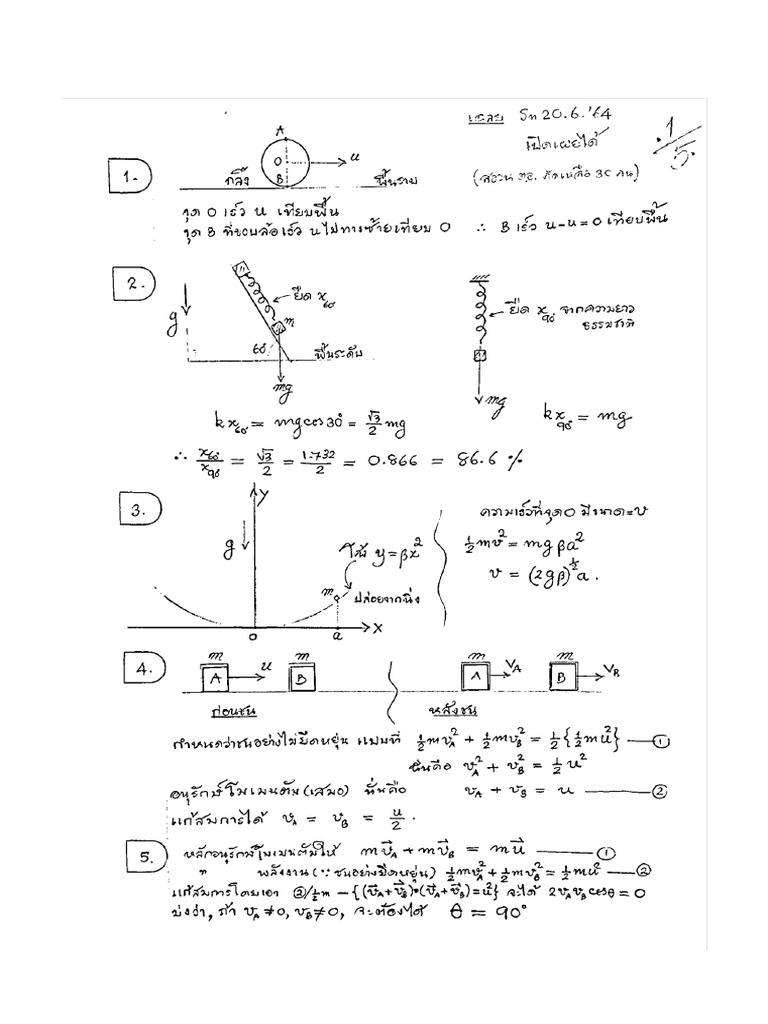 เฉลย Sn 20.6.'64
เปิดเผยได้
1/5.
(สอวน ตอ. คัดเหลือ 30 คน)
1.
A
O
B
u
กลิ้ง
พื้นราบ
จุด O เร็ว u เทียบพื้น
จุด B ที่ขอบล้อเร็ว u ไปทางซ้ายเทียบ O ∴ B เร็ว u-u=0 เทียบพื้น
2.
g
ยืด x60°
m
60°
พื้นระดับ
mg
ยืด x90° จากความยาว
ธรรมชาติ
mg
kx60° = mgcos30° = √3/2 mg
kx90° = mg
∴ x60°/x90° = √3/2 = 1.732/2 = 0.866 = 86.6 %
3.
y
g
โค้ง y=βx²
m
ปล่อยจากนิ่ง
0
a
x
ความเร็วที่จุด 0 มีขนาด = v
½mv² = mgβa²
v = (2gβ)^½ a.
4.
m
A
u
m
B
m
A
VA
m
B
VB
ก่อนชน
หลังชน
กำหนดว่าชนอย่างไม่ยืดหยุ่น แบบที่ ½mvA² + ½mvB² = ½{½mu²} — ①
นั่นคือ vA² + vB² = ½u²
อนุรักษ์โมเมนตัม (เสมอ) นั่นคือ vA + vB = u — ②
แก้สมการได้ vA = vB = u/2 .
5.
หลักอนุรักษ์โมเมนตัมให้ mv⃗A + mv⃗B = mu⃗ — ①
" พลังงาน (∵ ชนอย่างยืดหยุ่น) ½mvA² + ½mvB² = ½mu² — ②
แก้สมการโดยเอา ②/½m − {(v⃗A+v⃗B)•(v⃗A+v⃗B)=u²} จะได้ 2vAvBcosθ = 0
บ่งว่า, ถ้า vA≠0, vB≠0, จะต้องได้ θ = 90°